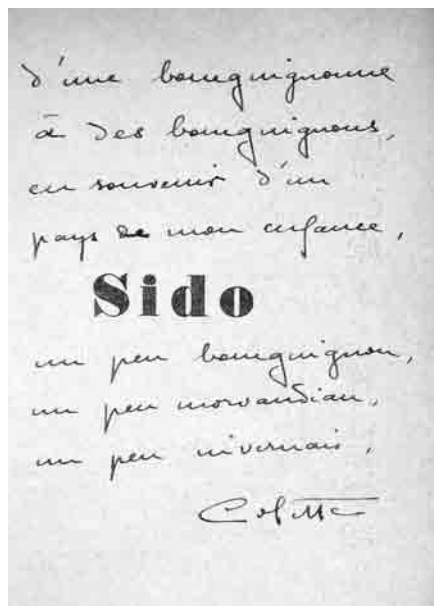 d'une bourguignonne
à des bourguignons,
en souvenir d'un
pays de mon enfance,
Sido
un peu bourguignon,
un peu morvandiau,
un peu nivernais,
Colette